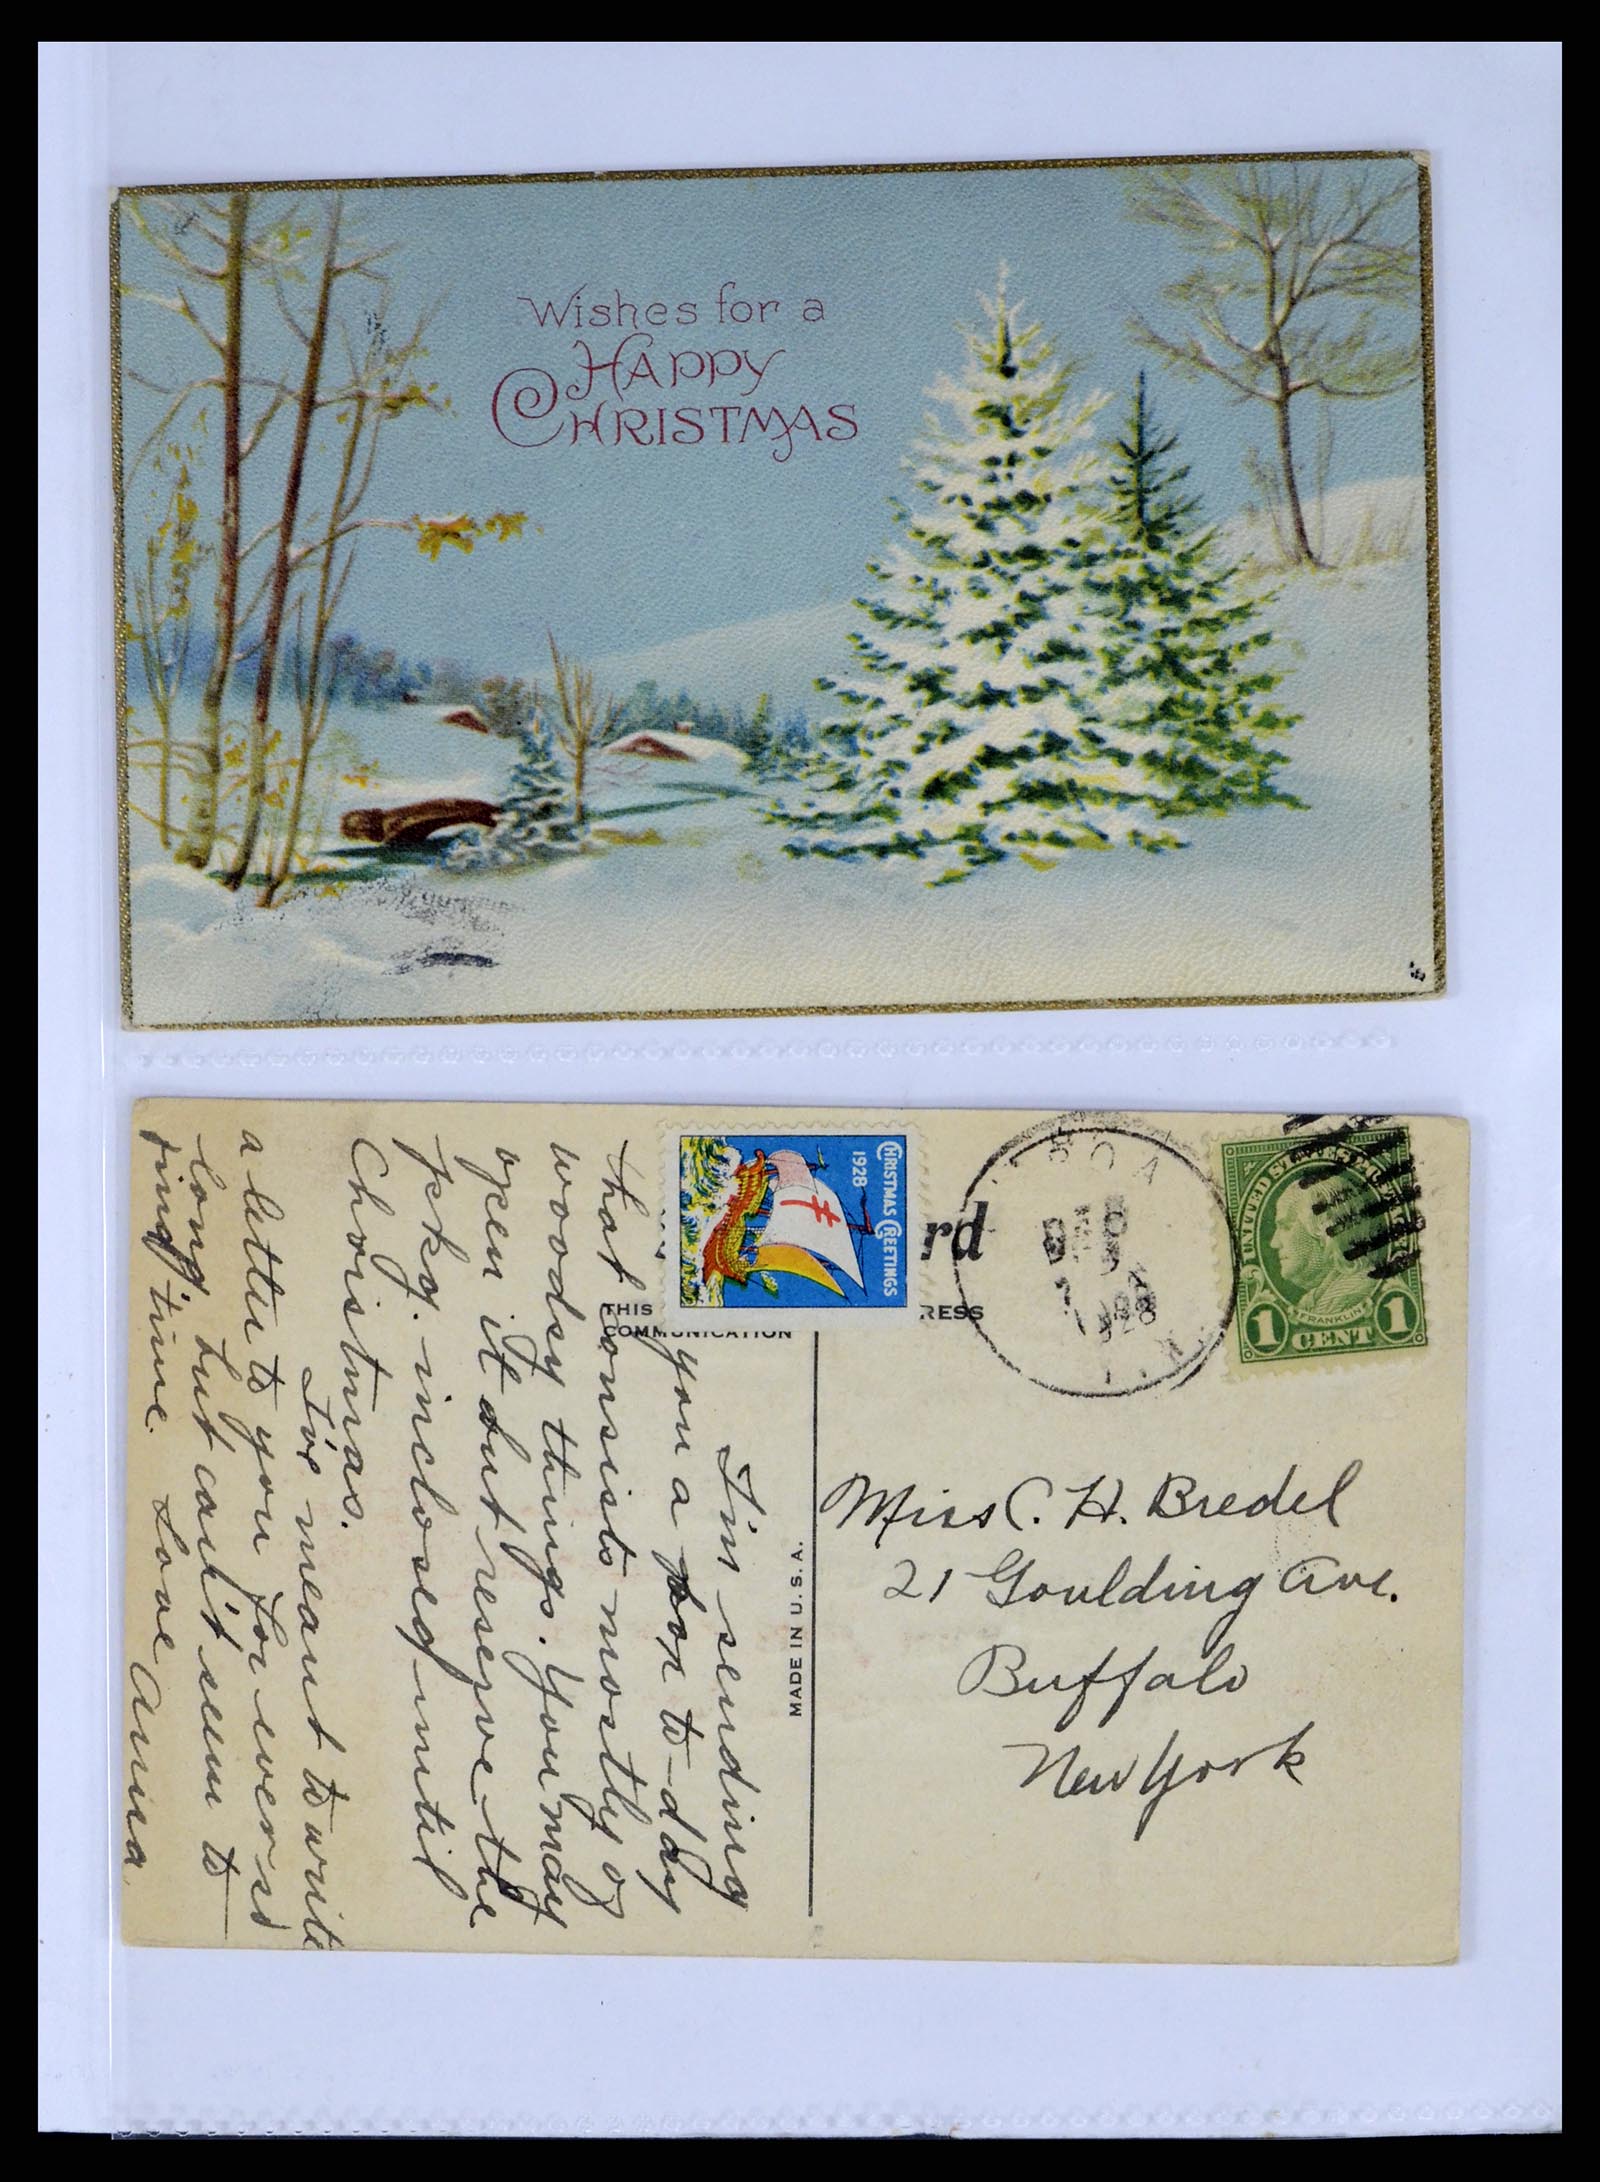 Wishes for a
HAPPY
CHRISTMAS
I'm sending
you a box to-day
that consists mostly of
woodsy things. You may
open it but reserve the
pckg. inclosed until
Christmas.
I've meant to write
a letter to you for ever so
long, but can't seem to
find time. Love Anna.
CHRISTMAS GREETINGS
1928
rd
THIS
RESS
COMMUNICATION
MADE IN U.S.A.
DEC
1928
UNITED STATES POSTAGE
FRANKLIN
1 CENT 1
Miss C. H. Bredel
21 Goulding Ave.
Buffalo
New York